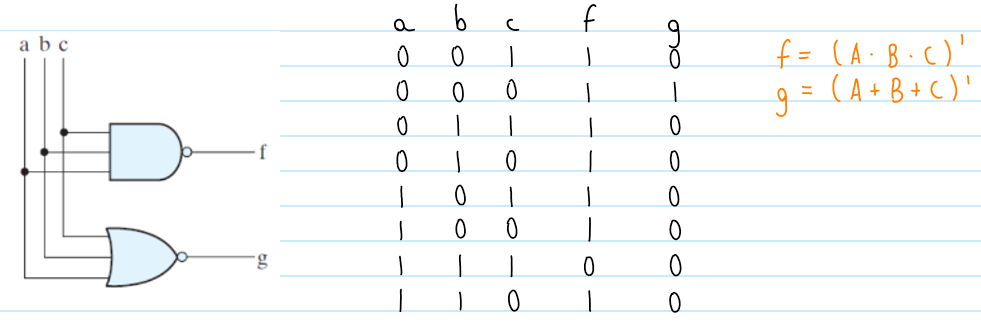 a b c
f
g
a b c f g
0 0 1 1 0
0 0 0 1 1
0 1 1 1 0
0 1 0 1 0
1 0 1 1 0
1 0 0 1 0
1 1 1 0 0
1 1 0 1 0
f = (A · B · C)'
g = (A + B + C)'